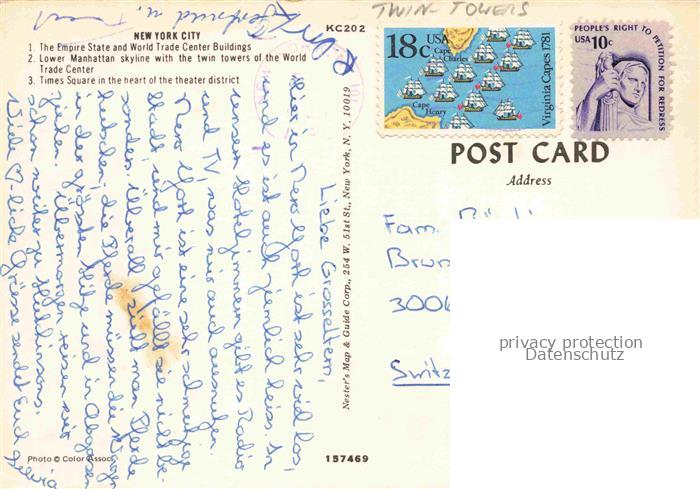 TWIN-TOWERS
KC202
NEW YORK CITY
1. The Empire State and World Trade Center Buildings
2. Lower Manhattan skyline with the twin towers of the World
Trade Center
3. Times Square in the heart of the theater district
18c USA
Cape
Charles
Cape
Henry
Virginia Capes 1781
PEOPLE'S RIGHT TO PETITION FOR REDRESS
USA 10c
POST CARD
Address
Fam.
Switz
privacy protection
Datenschutz
Nester's Map & Guide Corp., 254 W. 51st St., New York, N. Y. 10019
Liebe Grosseltern,
Hier in New York ist sehr viel los,
und es ist auch ziemlich heiss. In
unserem Hotelzimmern gibt es Radio
und TV, was wir auch ausnützen.
New York ist eine sehr schmutzige
Stadt, und mir gefällt sie nicht be-
sonders. Überall sieht man Pferde-
kutschen, die Pferde müssen die Kutschen
in der grössten Hitze und in Abgasen
ziehen. Übermorgen reisen wir
schon weiter zu Hutchinsons.
Viele liebe Grüsse sendet Euch
Photo © Color Assoc.
157469